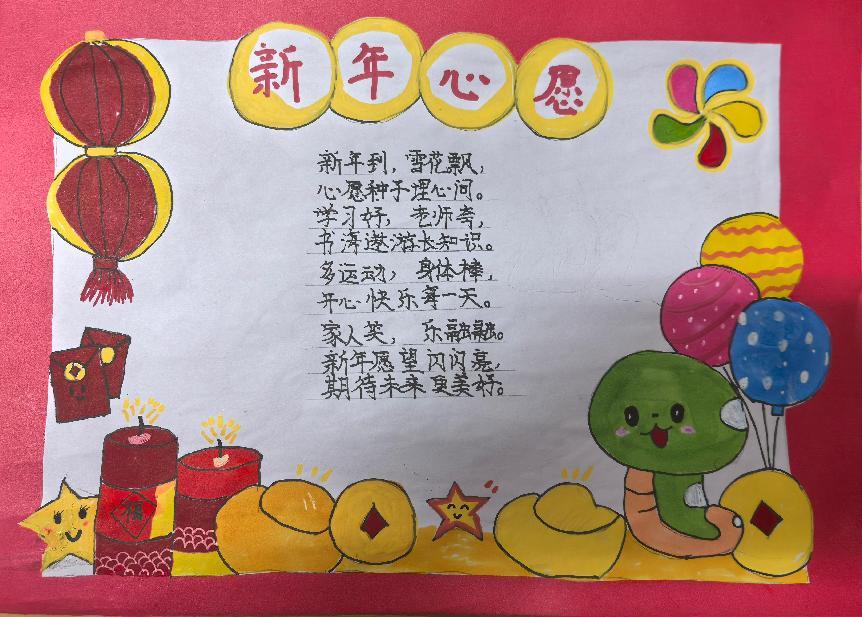 新年心愿
新年到，雪花飘，
心愿种子埋心间。
学习好，老师夸，
书海遨游长知识。
多运动，身体棒，
开心快乐每一天。
家人笑，乐融融。
新年愿望闪闪亮，
期待未来更美好。
福